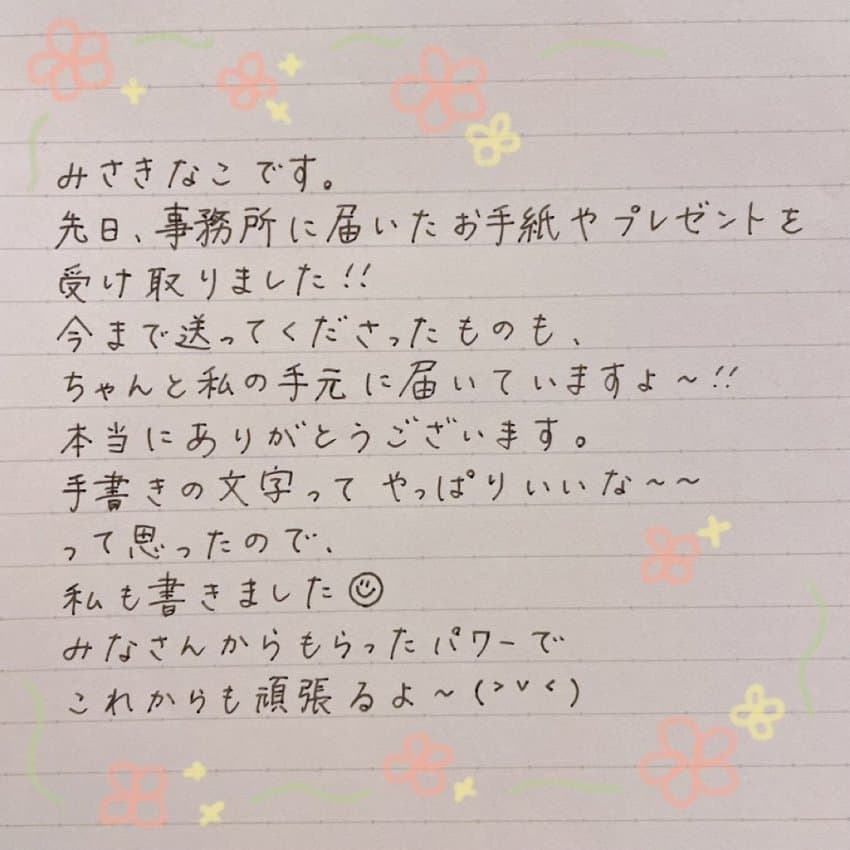 みさきなこです。
先日、事務所に届いたお手紙やプレゼントを
受け取りました!!
今まで送ってくださったものも、
ちゃんと私の手元に届いていますよ~!!
本当にありがとうございます。
手書きの文字ってやっぱりいいな~~
って思ったので、
私も書きました☺
みなさんからもらったパワーで
これからも頑張るよ~(>v<)